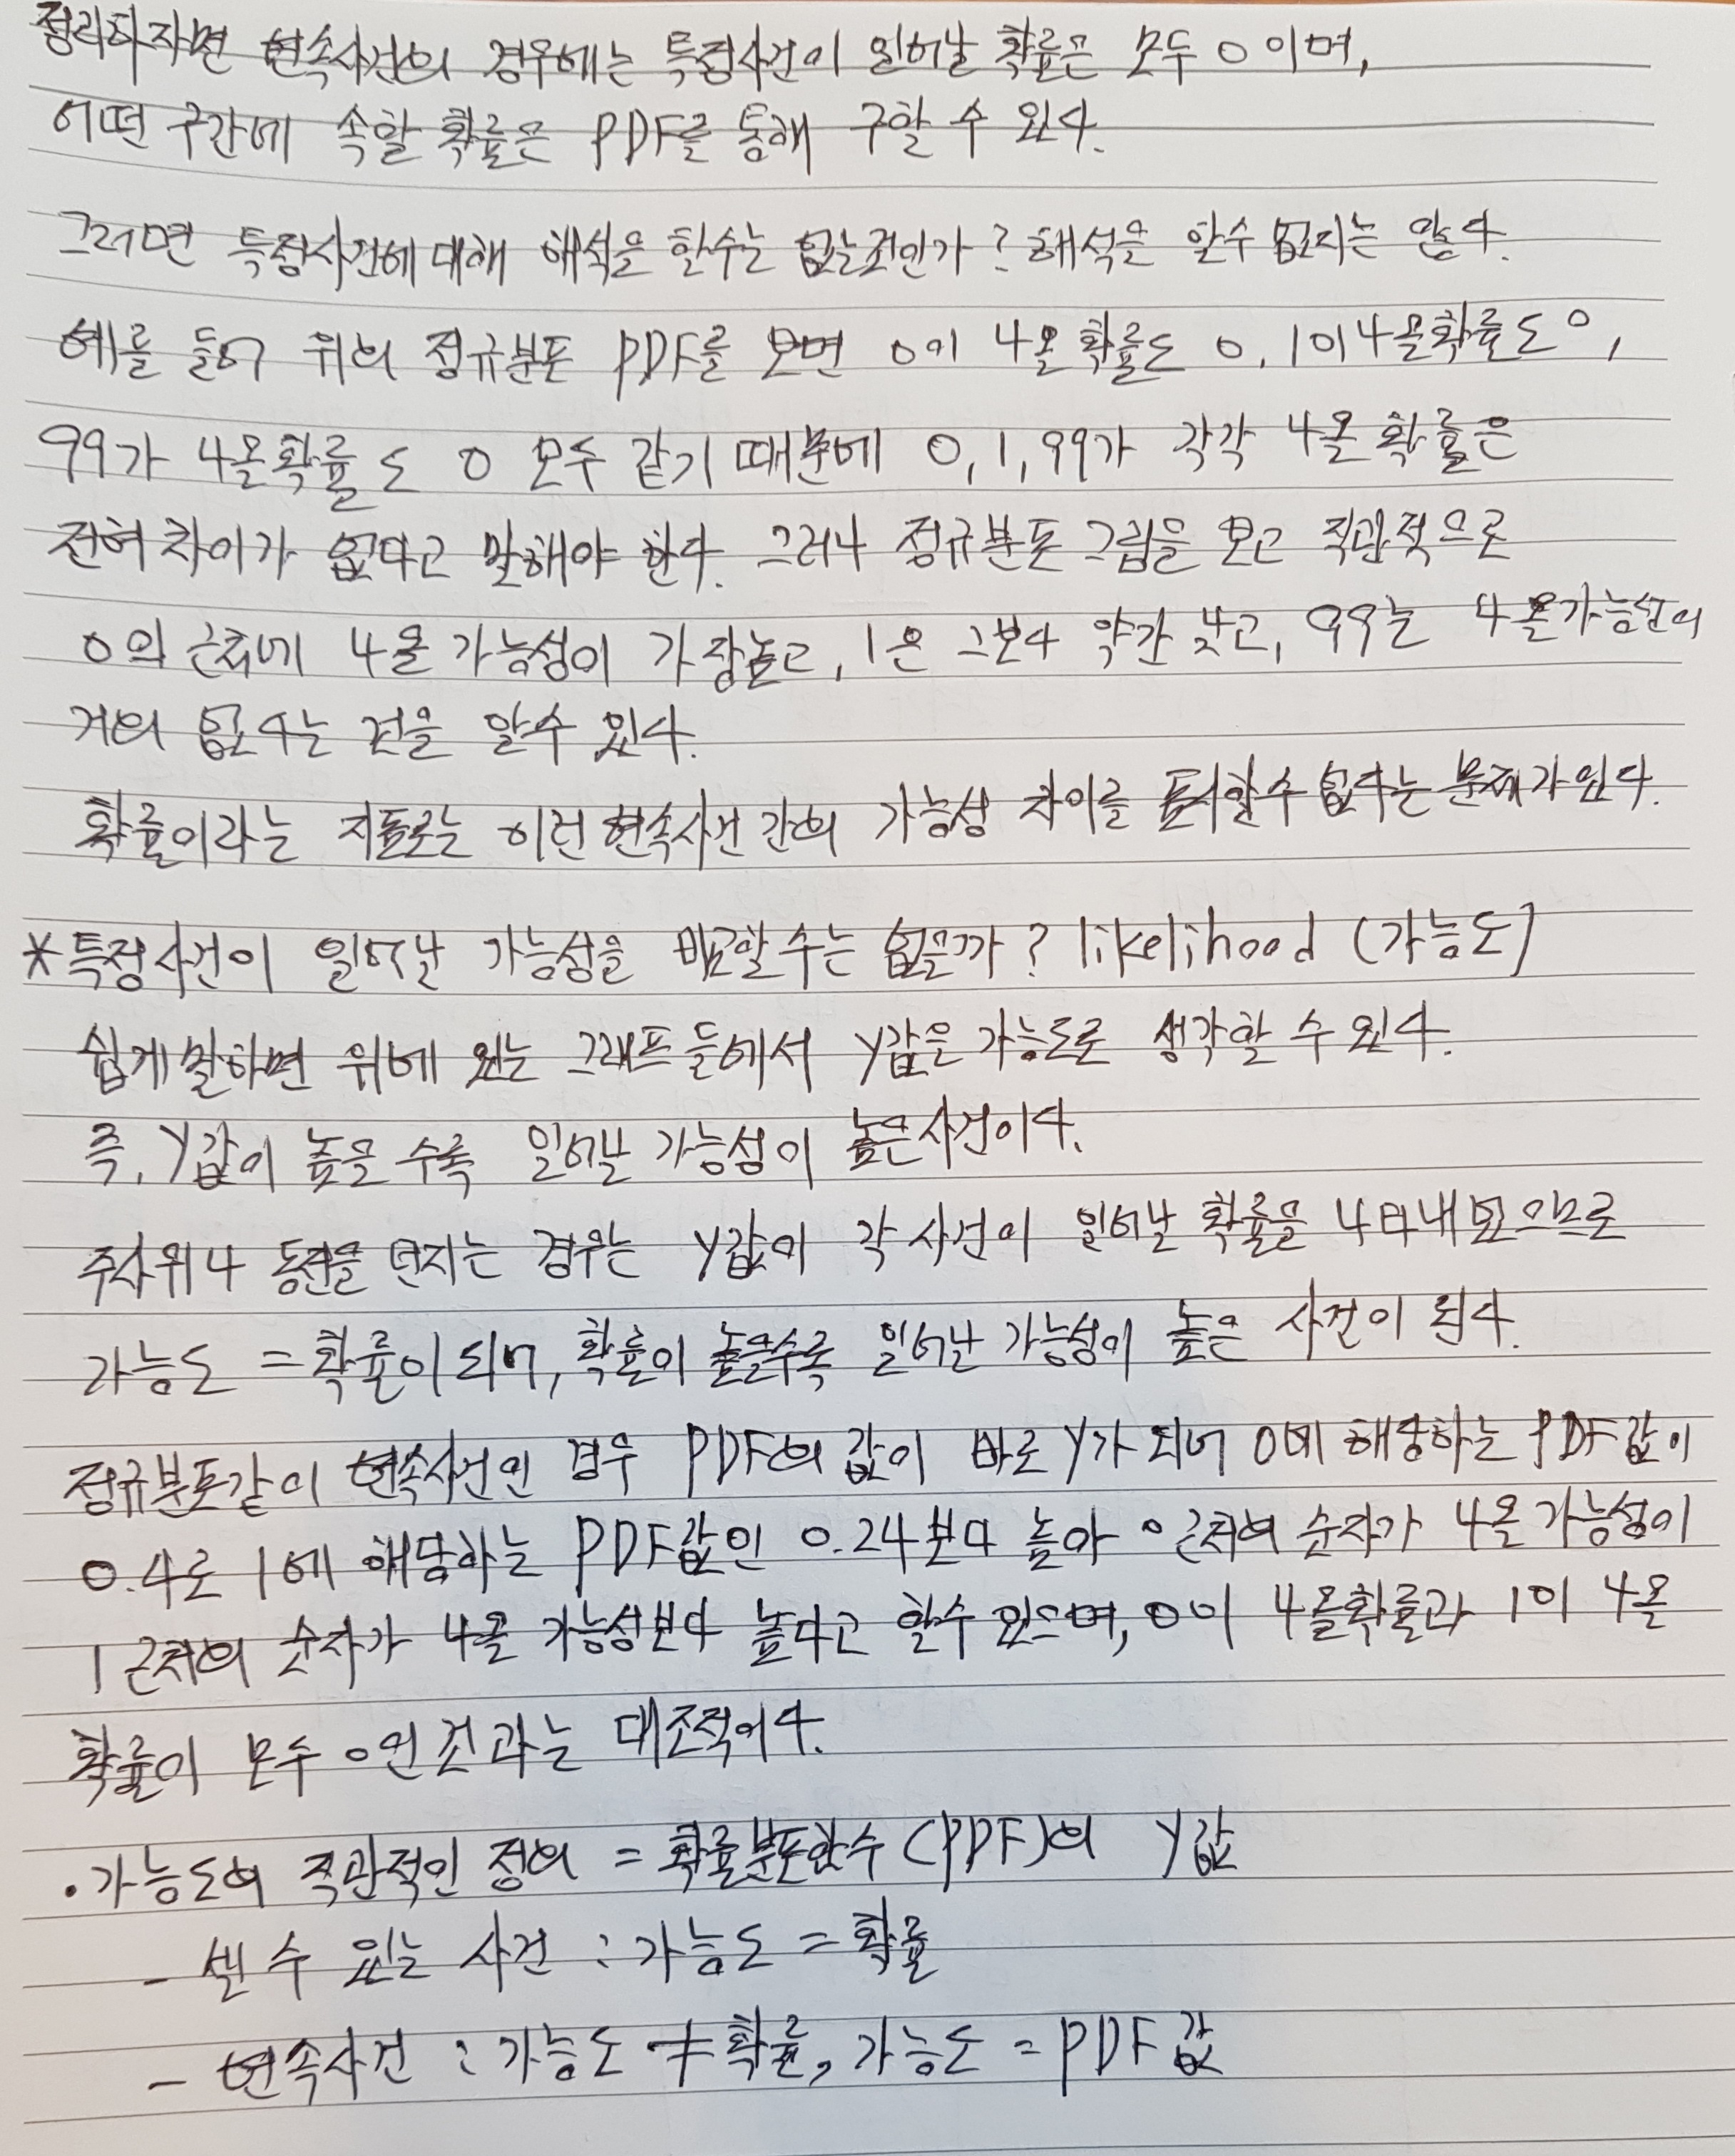 정리하자면 연속사건의 경우에는 특정사건이 일어날 확률은 모두 0이며,
어떤 구간에 속할 확률은 PDF를 통해 구할 수 있다.
그러면 특정사건에 대해 해석을 할수는 없는것인가? 해석을 할수 없지는 않다.
예를 들어 위의 정규분포 PDF를 보면 0이 나올 확률도 0, 1이 나올 확률도 0,
99가 나올 확률도 0 모두 같기 때문에 0, 1, 99가 각각 나올 확률은
전혀 차이가 없다고 말해야 한다. 그러나 정규분포 그림을 보고 직관적으로
0의 근처에 나올 가능성이 가장높고, 1은 그보다 약간 낮고, 99는 나올 가능성이
거의 없다는 것을 알수 있다.
확률이라는 지표로는 이런 연속사건 간의 가능성 차이를 표시할수 없다는 문제가 있다.
* 특정사건이 일어날 가능성을 비교할 수는 없을까? likelihood (가능도)
쉽게 말하면 위에 있는 그래프 들에서 Y값을 가능도로 생각할 수 있다.
즉, Y값이 높을 수록 일어날 가능성이 높은 사건이다.
주사위나 동전을 던지는 경우는 Y값이 각 사건이 일어날 확률을 나타내므로
가능도 = 확률이 되어, 확률이 높을수록 일어날 가능성이 높은 사건이 된다.
정규분포같이 연속사건인 경우 PDF의 값이 바로 Y가 되어 0에 해당하는 PDF값이
0.4로 1에 해당하는 PDF값인 0.24보다 높아 0 근처의 숫자가 나올 가능성이
1 근처의 숫자가 나올 가능성보다 높다고 할수 있으며, 0이 나올확률과 1이 나올
확률이 모두 0인 것과는 대조적이다.
• 가능도의 직관적인 정의 = 확률분포함수 (PDF)의 Y값
- 셀 수 있는 사건 : 가능도 = 확률
- 연속사건 : 가능도 ≠ 확률, 가능도 = PDF 값